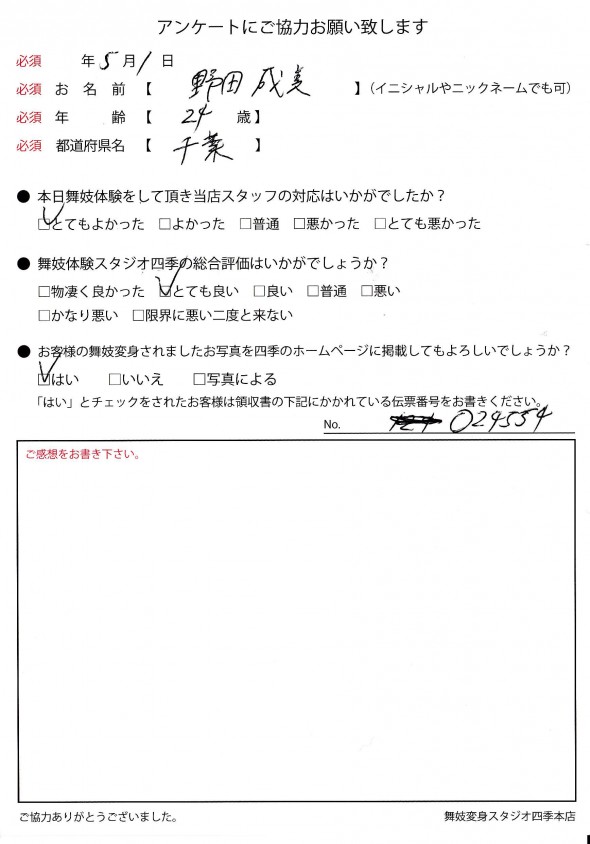 アンケートにご協力お願い致します
必須 年5月1日
必須 お名前【 野田 成美 】(イニシャルやニックネームでも可)
必須 年齢【 24 歳】
必須 都道府県名【 千葉 】
● 本日舞妓体験をして頂き当店スタッフの対応はいかがでしたか?
□とてもよかった □よかった □普通 □悪かった □とても悪かった
● 舞妓体験スタジオ四季の総合評価はいかがでしょうか?
□物凄く良かった □とても良い □良い □普通 □悪い
□かなり悪い □限界に悪い二度と来ない
● お客様の舞妓変身されましたお写真を四季のホームページに掲載してもよろしいでしょうか?
□はい □いいえ □写真による
「はい」とチェックをされたお客様は領収書の下記にかかれている伝票番号をお書きください。
No. 024554
ご感想をお書き下さい。
ご協力ありがとうございました。 舞妓変身スタジオ四季本店